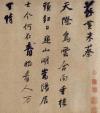 蘇黃米蔡
天際烏雲含雨重樓
前紅日照山明嵩陽居
士今何在青眼看人万
里情